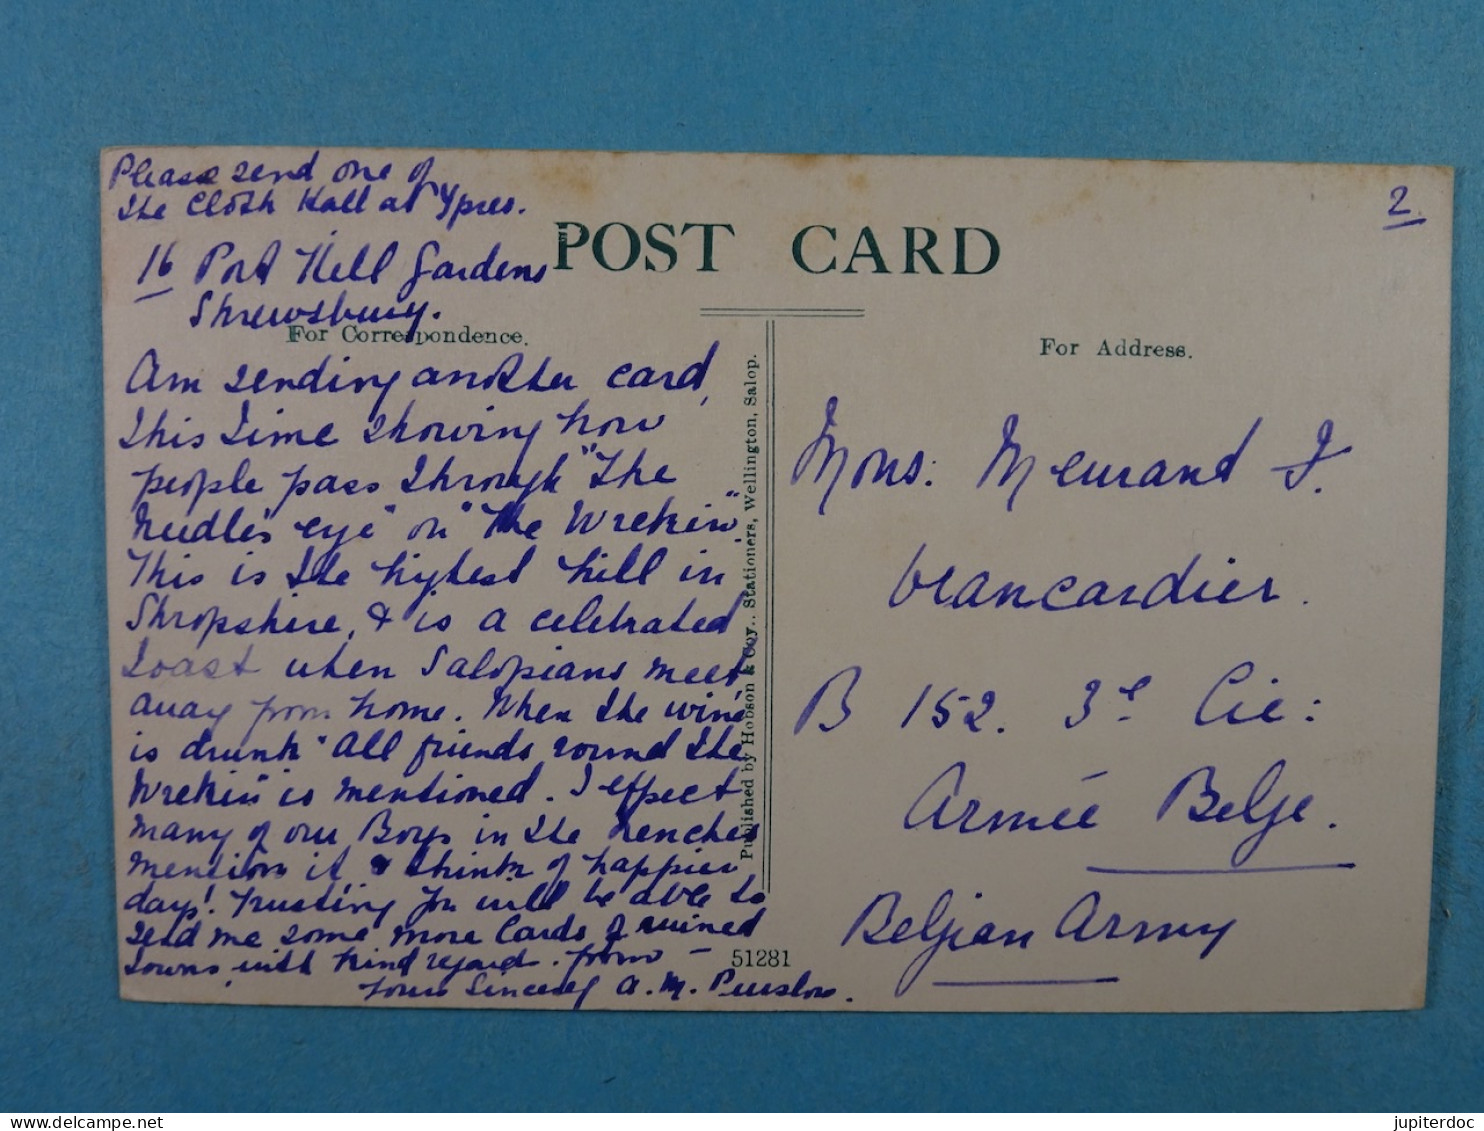 Please send one of
the Cloth Hall at Ypres.
2.
POST CARD
16 Port Hill Gardens
Shrewsbury.
For Correspondence.
Am sending another card,
this time showing how
people pass through "The
Needle's eye" on "The Wrekin".
This is the highest hill in
Shropshire, & is a celebrated
toast when Salopians meet
away from home. When the wine
is drunk "All friends round the
Wrekin" is mentioned. I expect
many of our Boys in the trenches
mention it & think of happier
days! Trusting you will be able to
send me some more Cards of ruined
towns, with kind regards. from —
Yours Sincerely A. M. Purslow.
Published by Hobson & Coy., Stationers, Wellington, Salop.
51281
For Address.
Mons: Meurand J.
brancardier.
B 152. 3e Cie:
Armée Belge.
Belgian Army
jupiterdoc